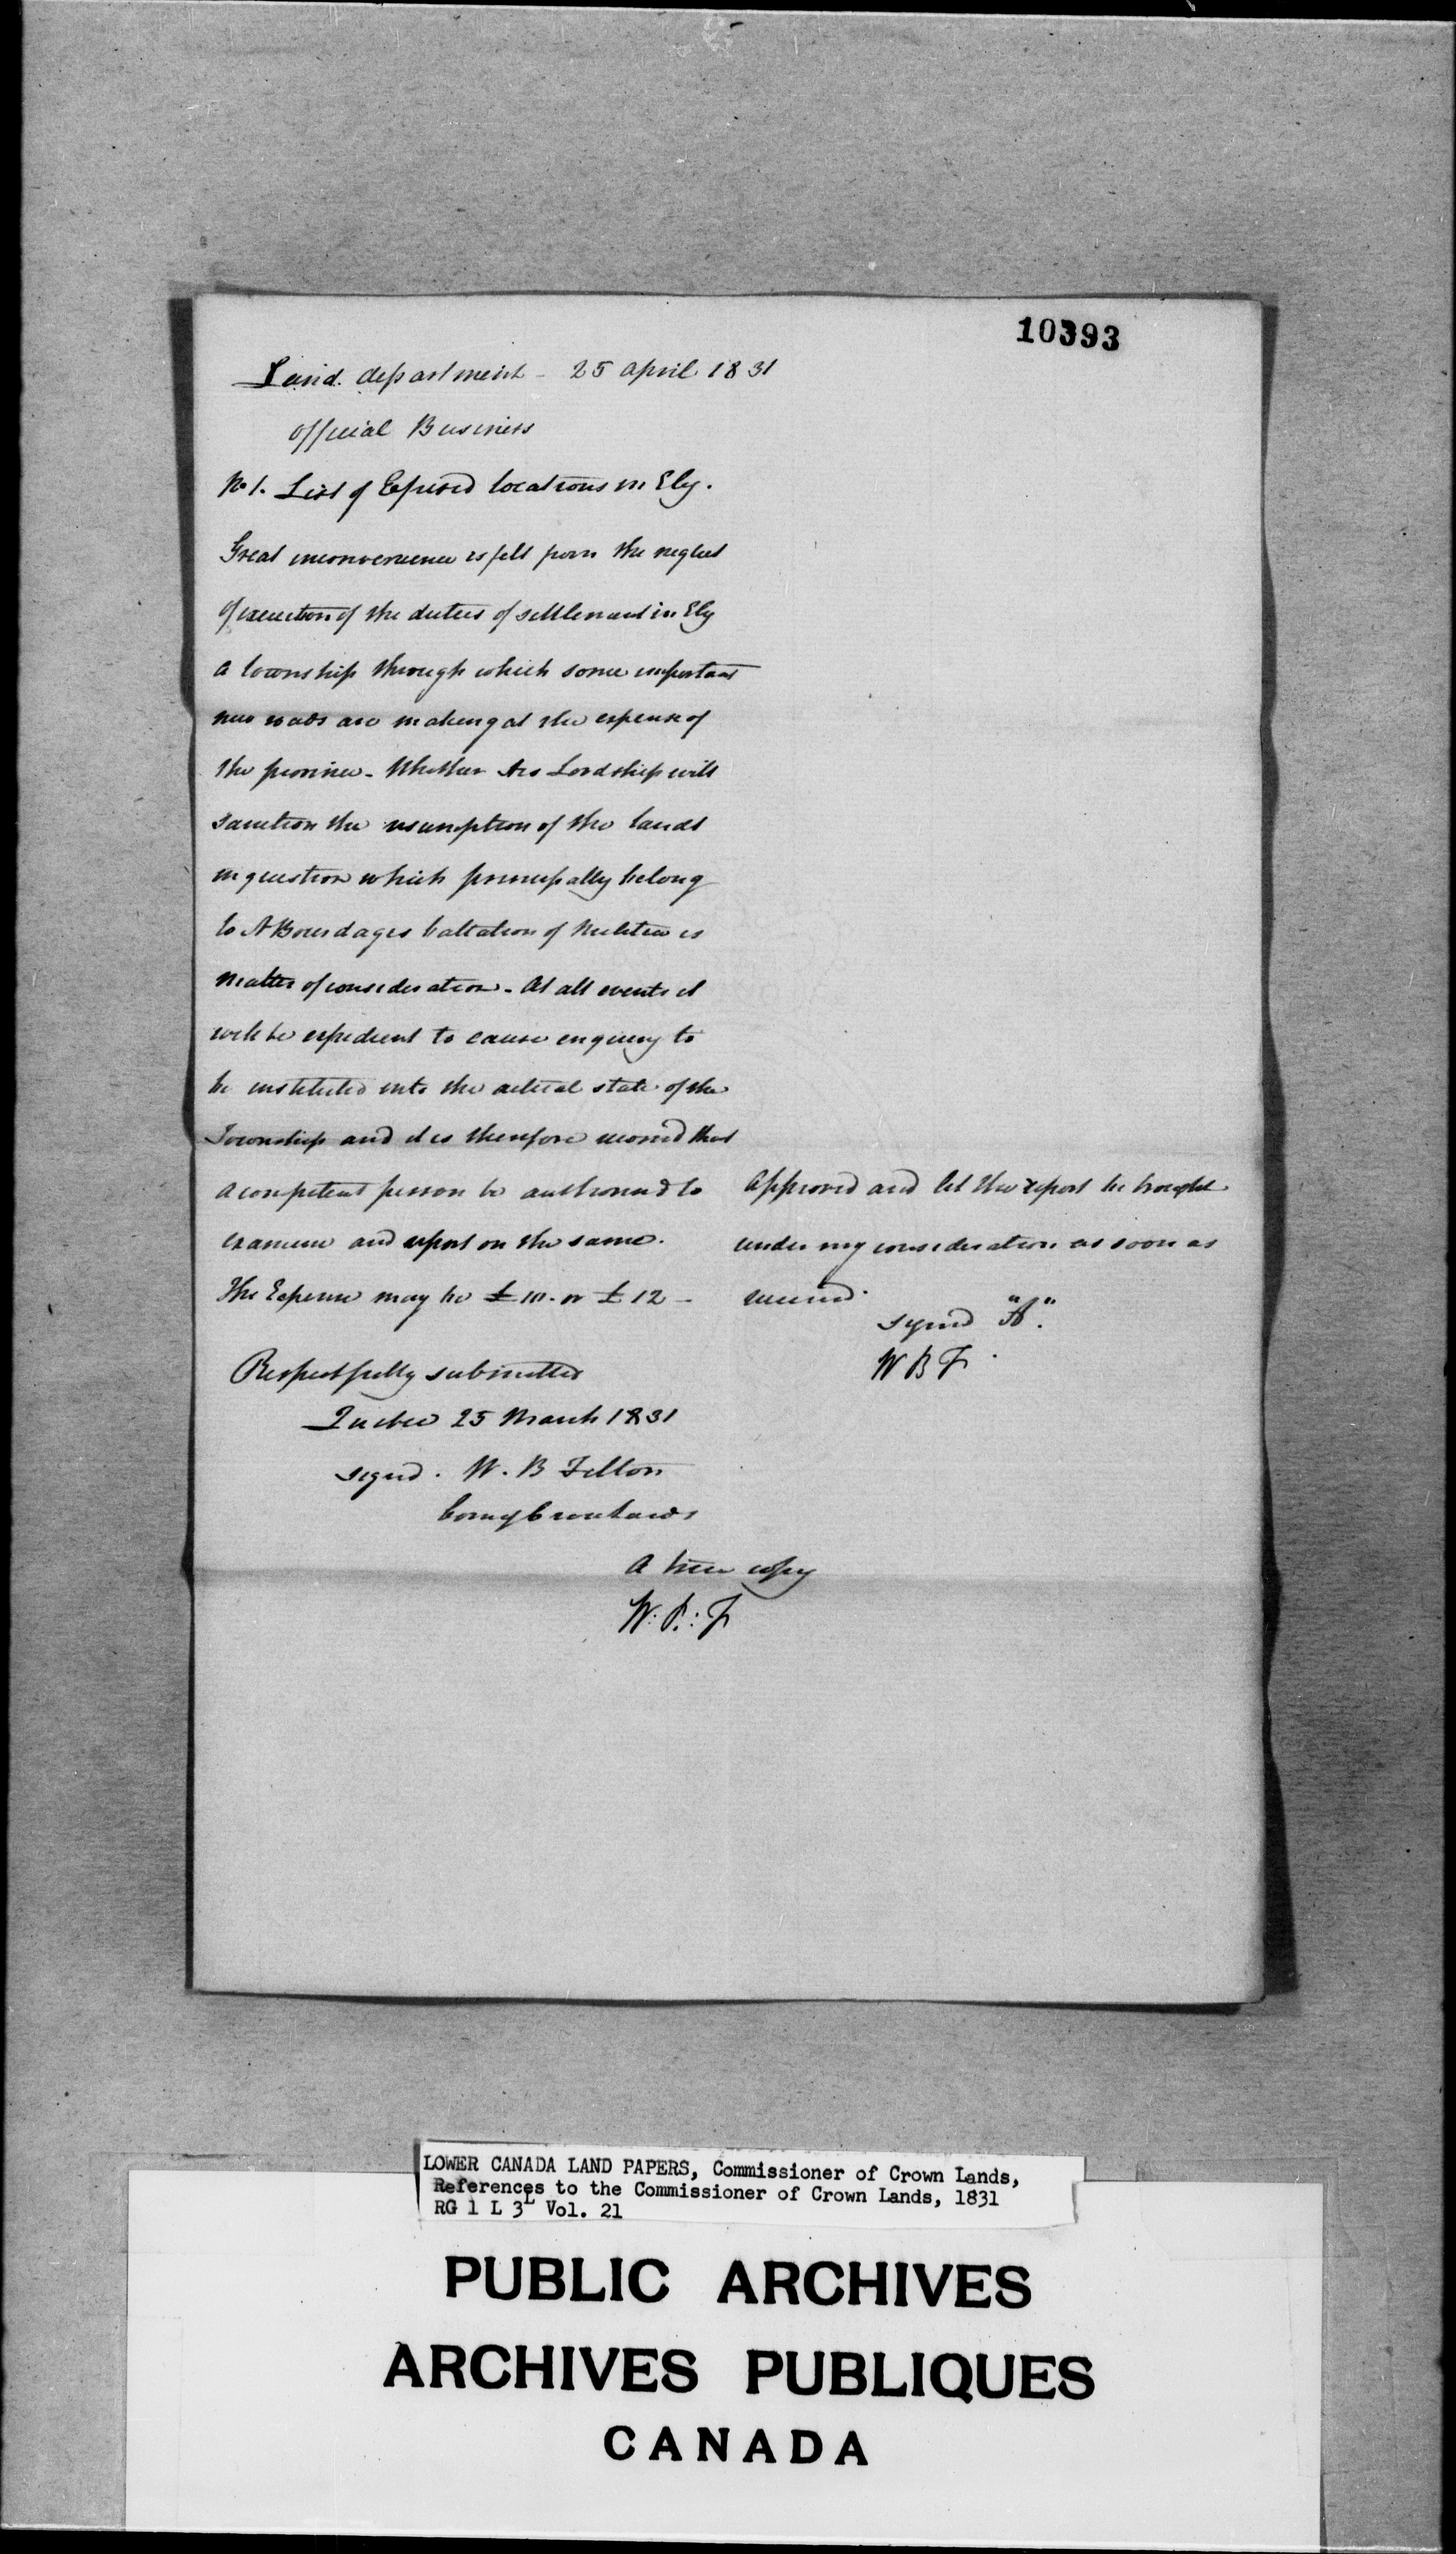 10393
Land department - 25 April 1831
Official Business
No 1. List of Expired locations in Ely.
Great inconvenience is felt from the neglect
of execution of the duties of settlement in Ely
a township through which some important
new roads are making at the expense of
the province - Whether His Lordship will
sanction the resumption of the lands
in question which principally belong
to Bourdages battalion of Militia is
matter of consideration - At all events it
will be expedient to cause enquiry to
be instituted into the actual state of the
Township and it is therefore moved that
a competent person be authorised to
examine and report on the same.
The Expense may be £10. or £12 -
Approved and let the report be brought
under my consideration as soon as
received.
signd "A".
W B F.
Respectfully submitted
Quebec 25 March 1831
signd. W. B Felton
Comy Crown Lands
A true copy
W: B: F
LOWER CANADA LAND PAPERS, Commissioner of Crown Lands,
References to the Commissioner of Crown Lands, 1831
RG 1 L 3L Vol. 21
PUBLIC ARCHIVES
ARCHIVES PUBLIQUES
CANADA